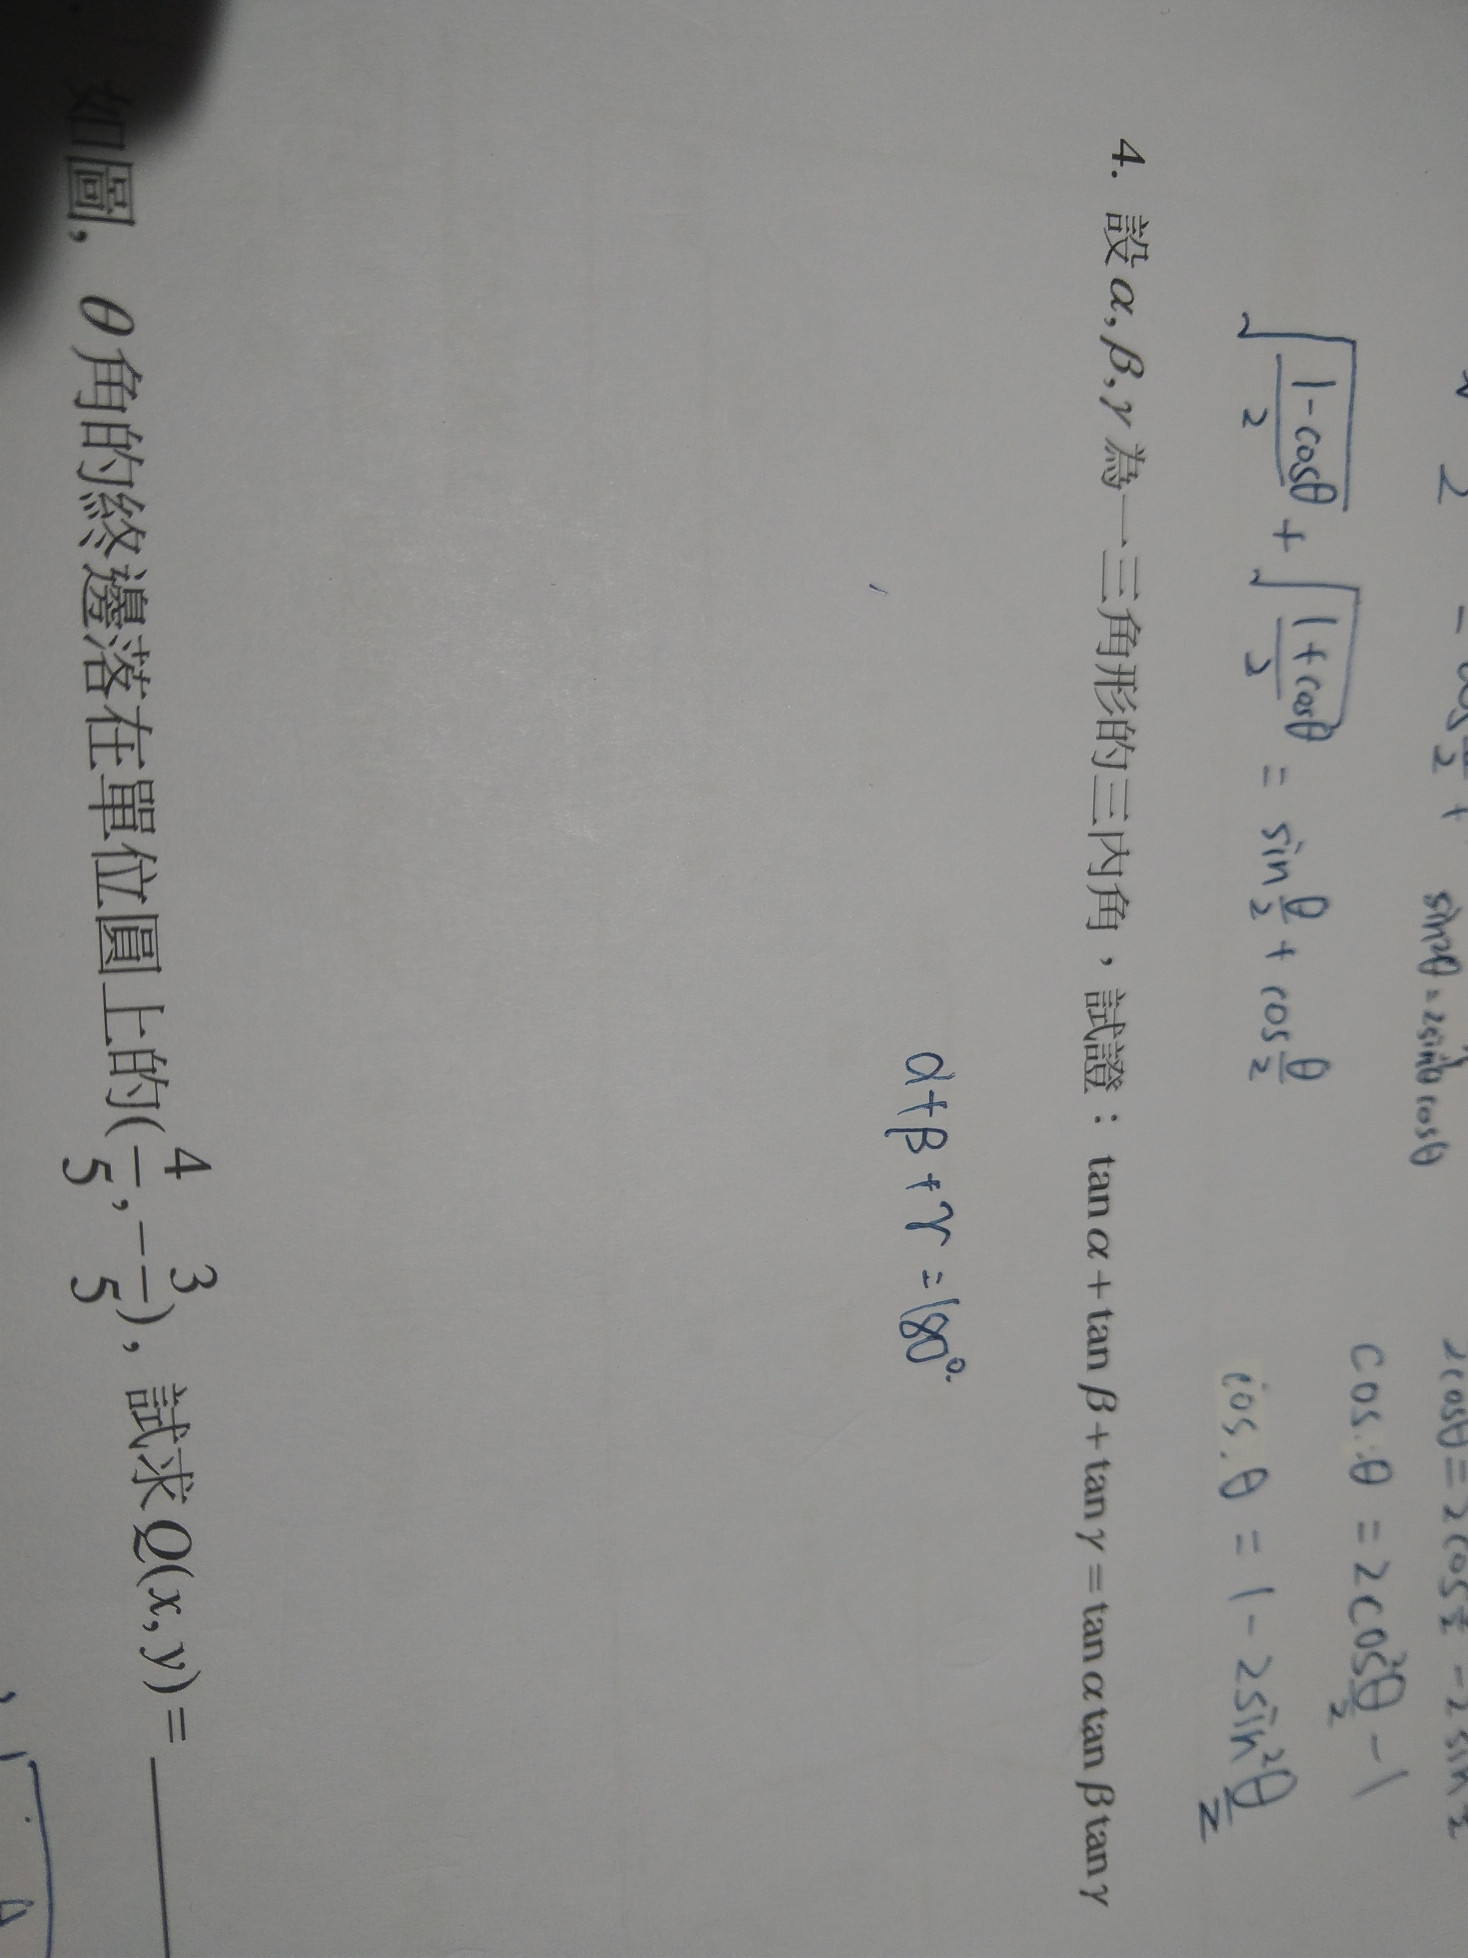 sin2θ = 2sinθ cosθ
cos θ = 2cos²θ/2 - 1
√((1-cosθ)/2) + √((1+cosθ)/2) = sin θ/2 + cos θ/2
cos θ = 1 - 2sin²θ/2
4. 設 α, β, γ 為一三角形的三內角，試證：tan α + tan β + tan γ = tan α tan β tan γ
α+β+γ=180°
如圖, θ 角的終邊落在單位圓上的(4/5, -3/5), 試求Q(x, y) = ______